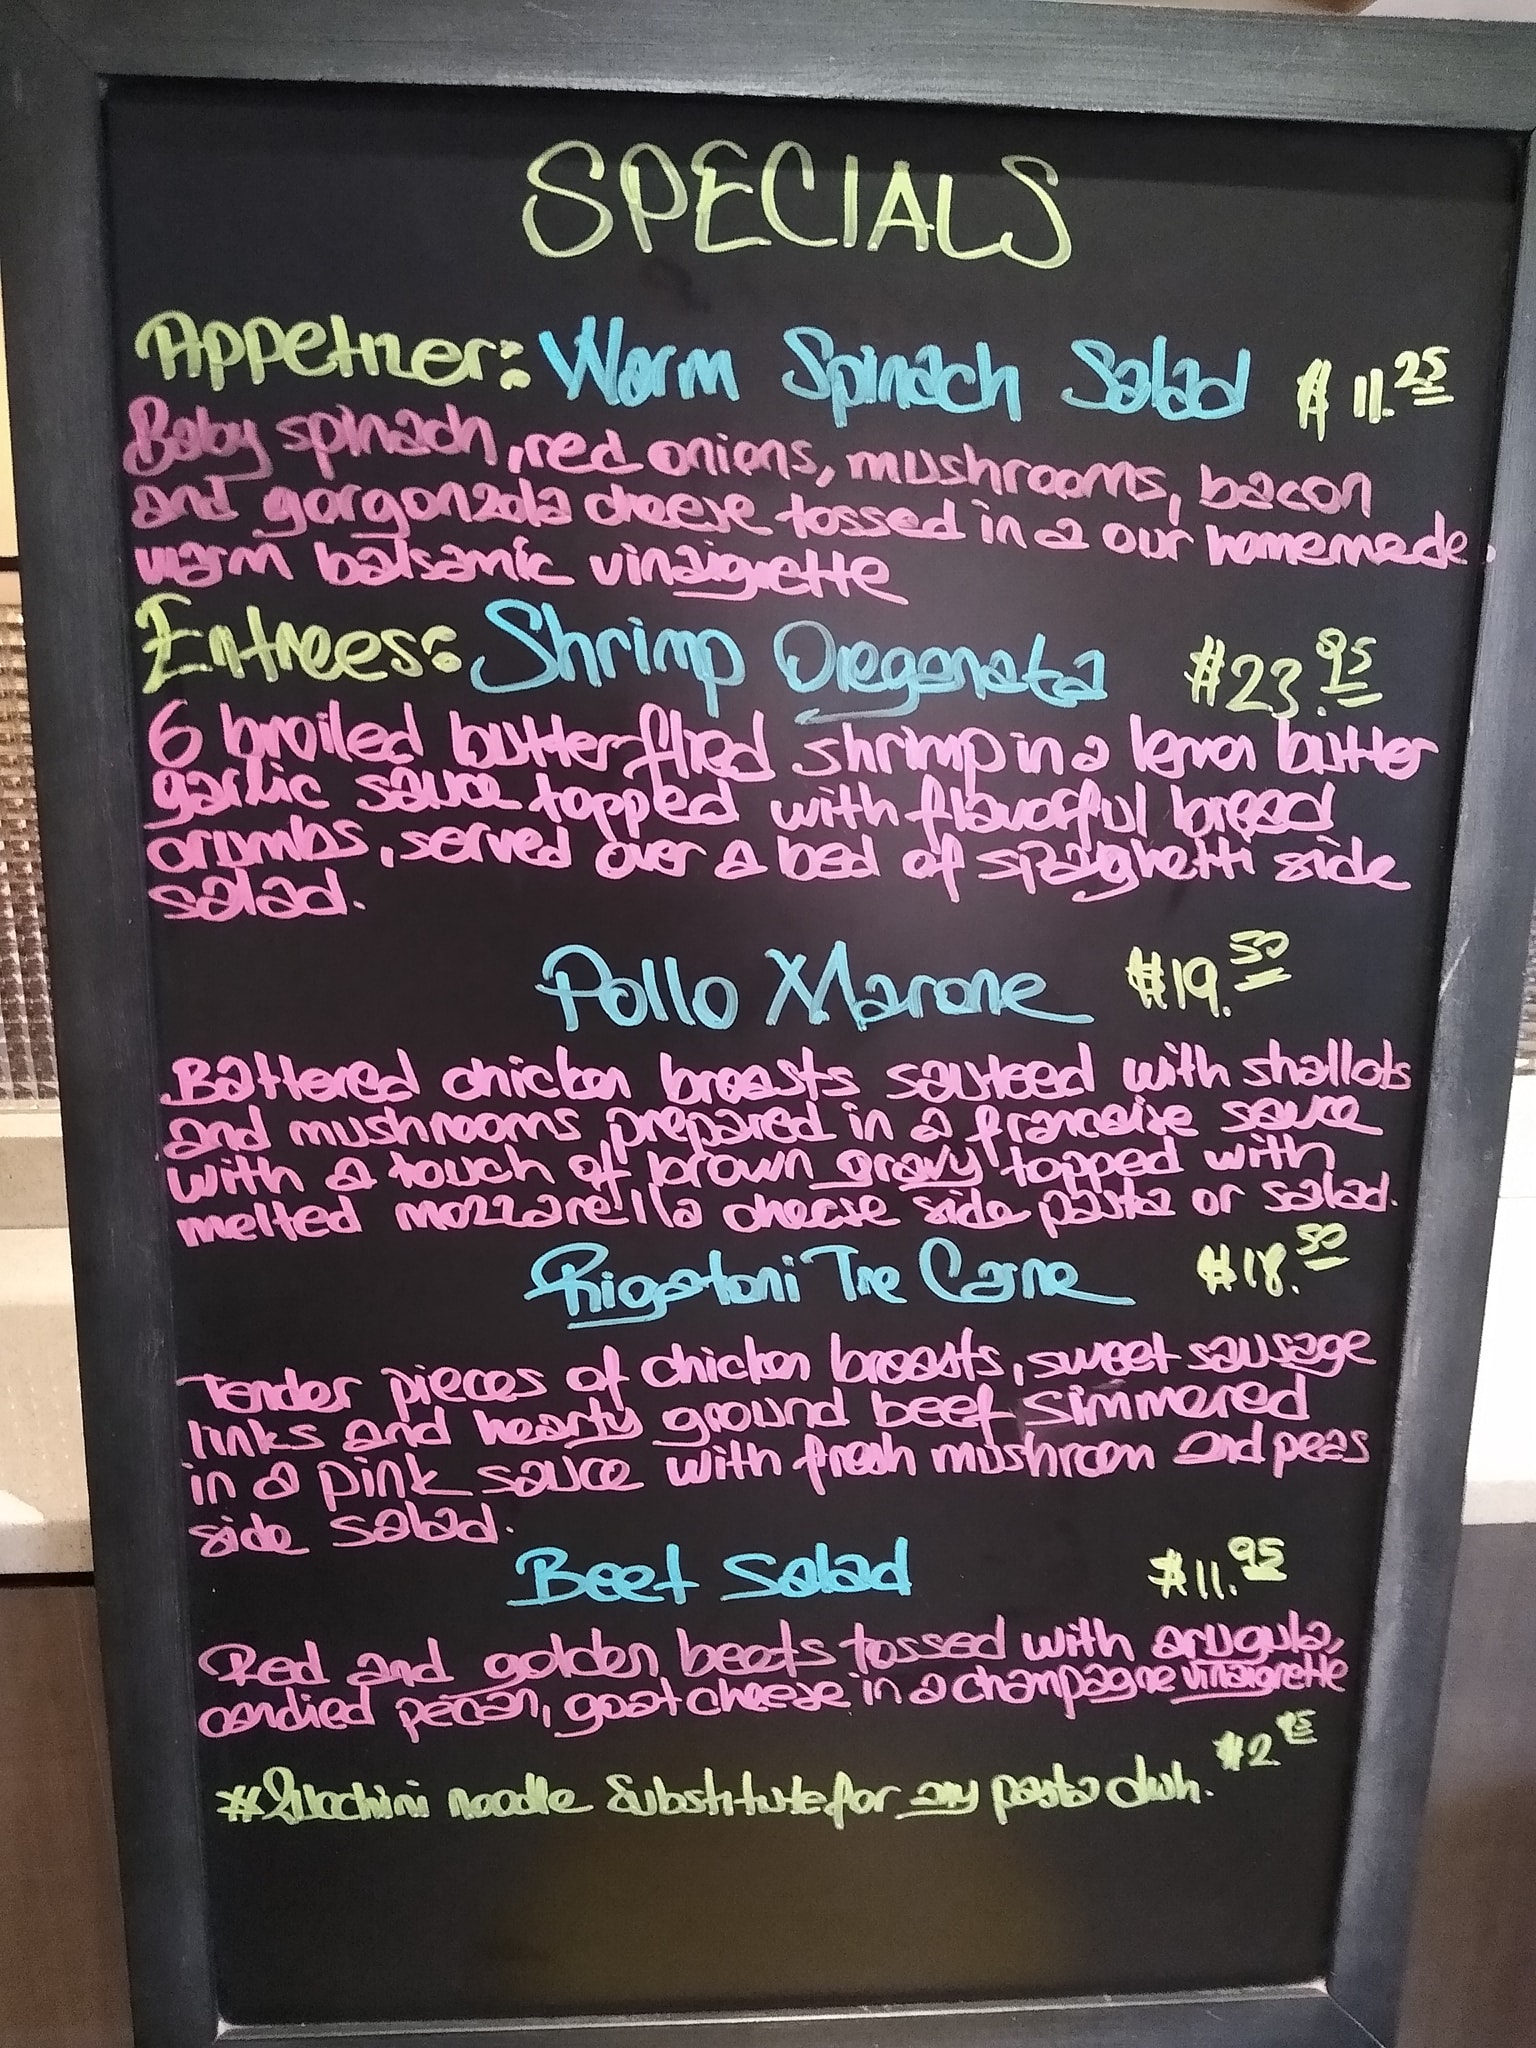 SPECIALS
Appetizer: Warm Spinach Salad $11.25
Baby spinach, red onions, mushrooms, bacon
and gorgonzola cheese tossed in a our homemede.
warm balsamic vinaigrette
Entrees: Shrimp Oreganata $23.95
6 broiled butterflied shrimp in a lemon butter
garlic sauce topped with flavorful bread
crumbs, served over a bed of spaghetti side
salad.
Pollo Marone $19.50
Battered chicken breasts sauteed with shallots
and mushrooms, prepared in a francaise sauce
with a touch of brown gravy topped with
melted mozzarella cheese side pasta or salad.
Rigatoni Tre Carne $18.50
Tender pieces of chicken breasts, sweet sausage
links and hearty ground beef simmered
in a pink sauce with fresh mushroom and peas
side salad.
Beet Salad $11.95
Red and golden beets tossed with arugula,
candied pecan, goat cheese in a champagne vinaigrette
#Zucchini noodle substitute for any pasta dish. $2.95